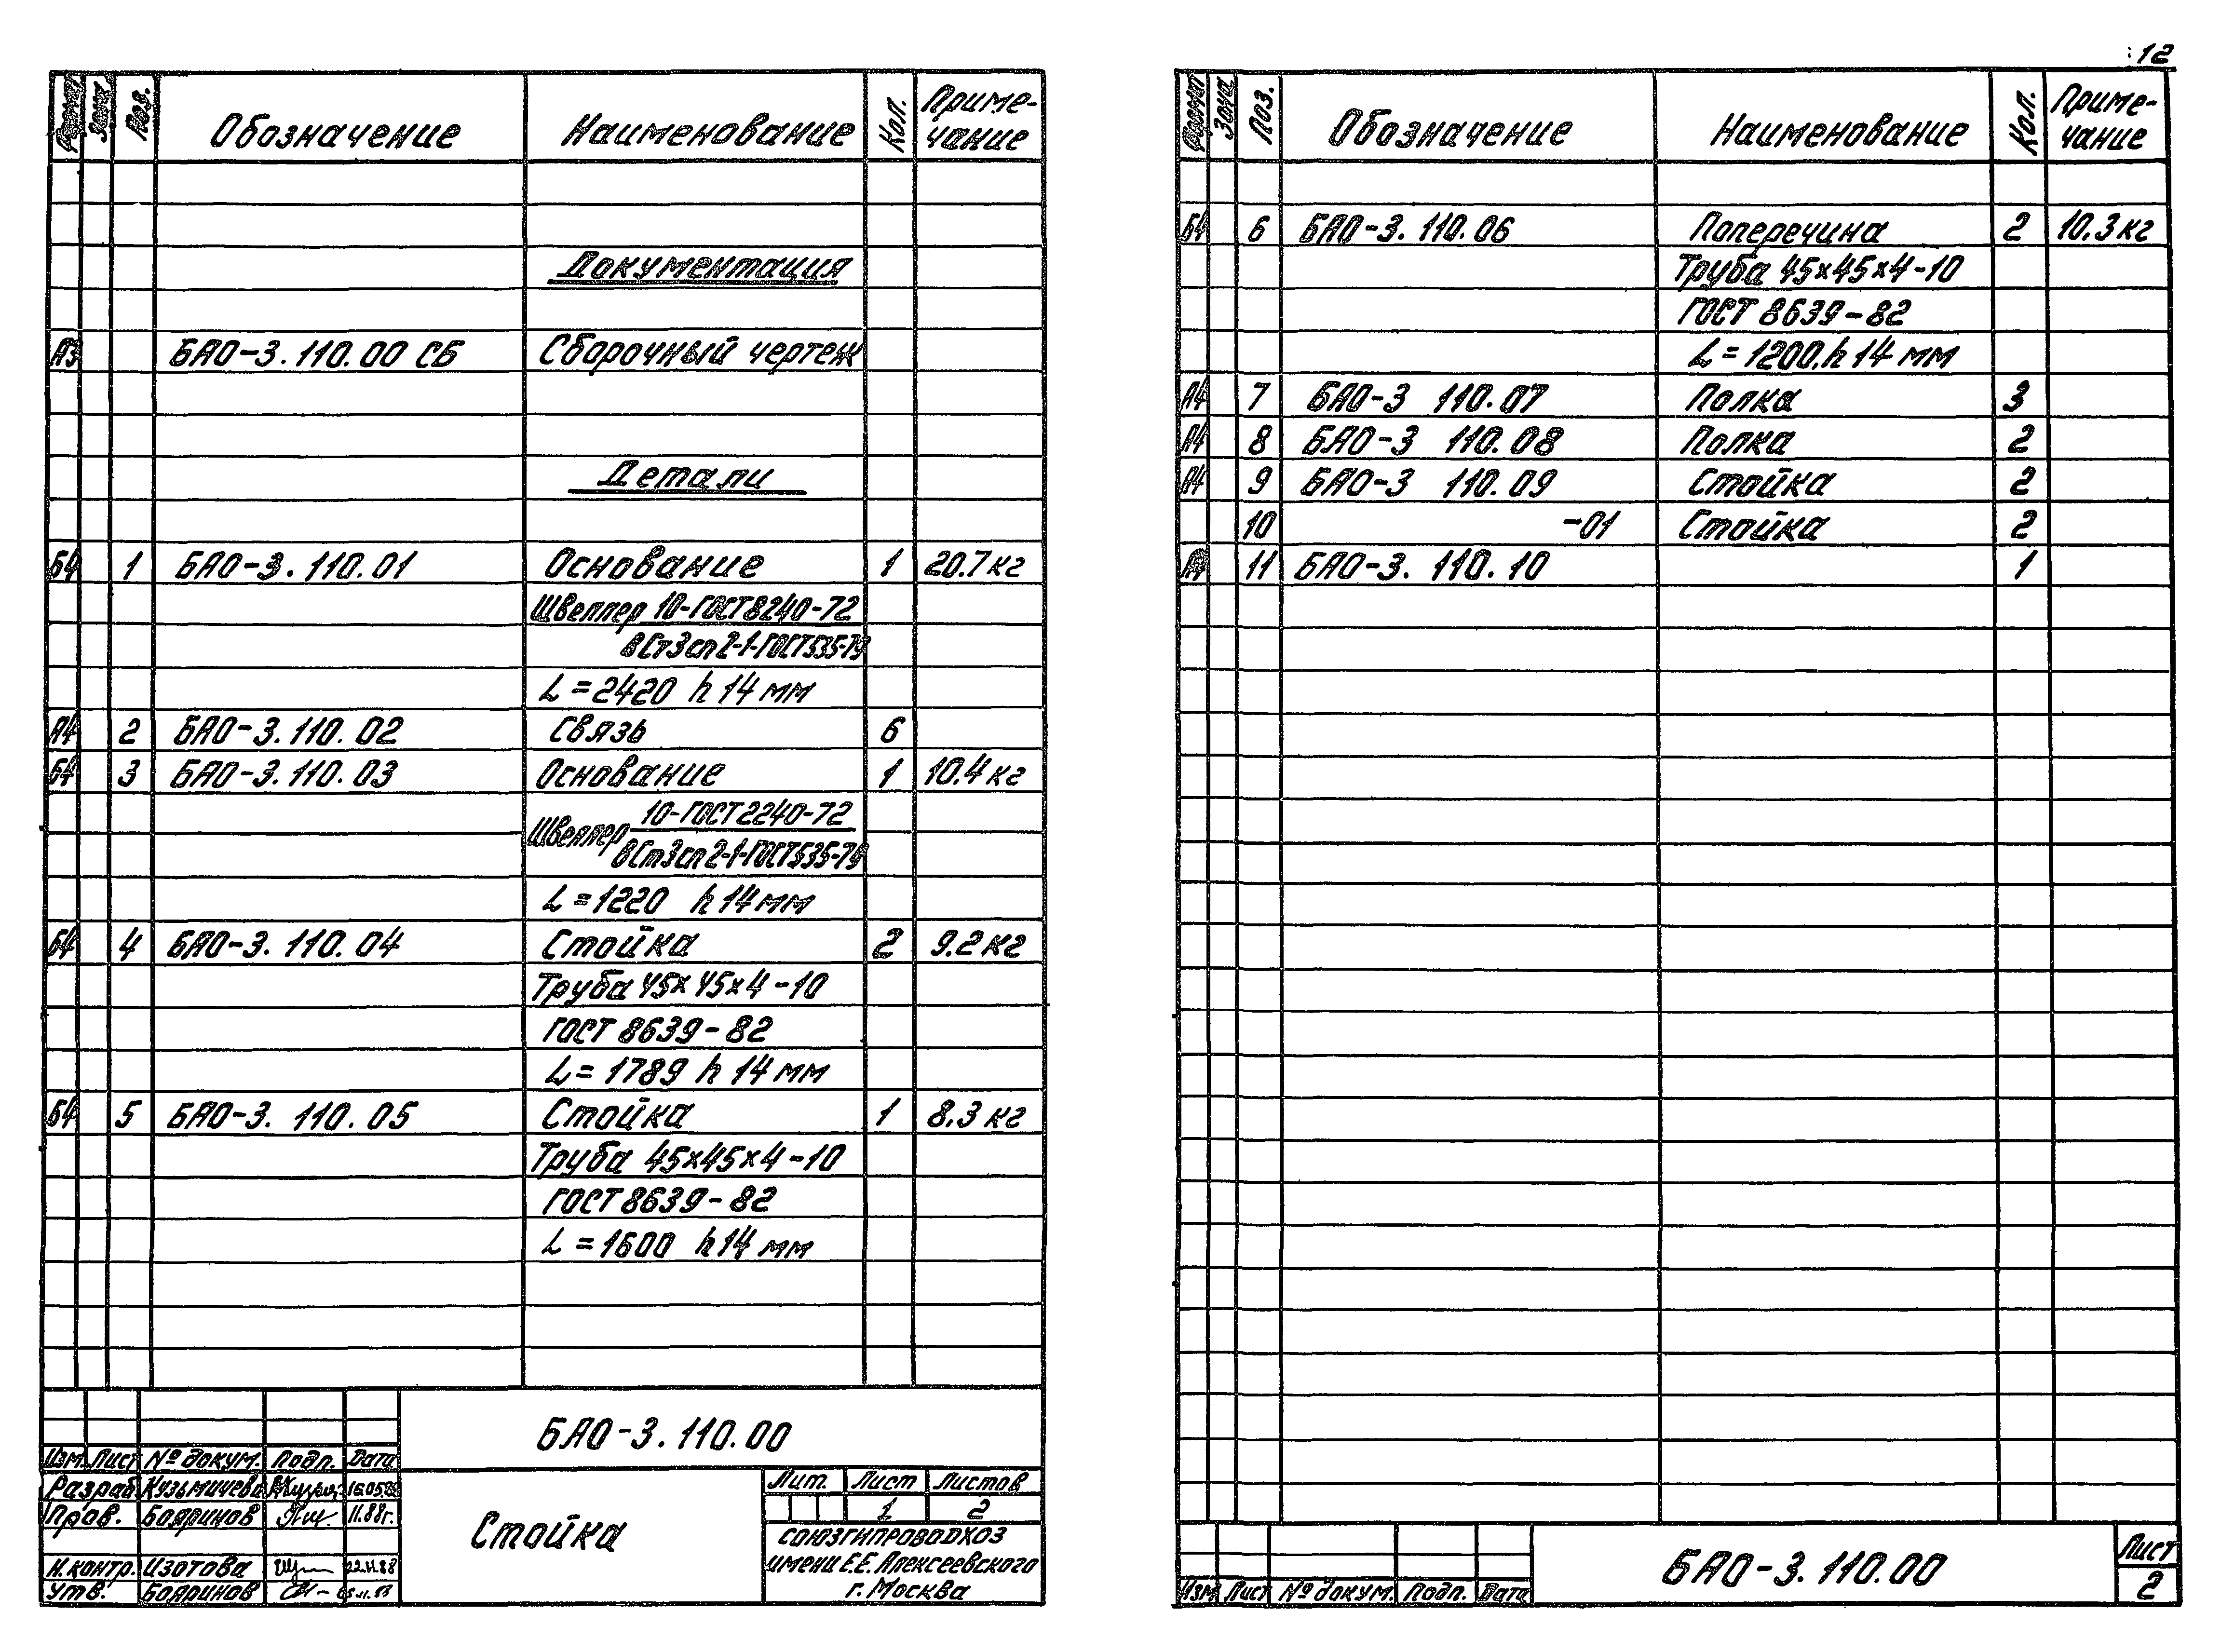 12
Формат Зона Поз. Обозначение Наименование Кол. Приме-
чание
Документация
А3 БАО-3.110.00 СБ Сборочный чертеж
Детали
БЧ 1 БАО-3.110.01 Основание 1 20.7 кг
Швеллер 10-ГОСТ 8240-72
ВСт3сп2-1-ГОСТ535-79
L=2420 h14 мм
А4 2 БАО-3.110.02 Связь 6
БЧ 3 БАО-3.110.03 Основание 1 10.4 кг
Швеллер 10-ГОСТ 2240-72
ВСт3сп2-1-ГОСТ535-79
L=1220 h14 мм
БЧ 4 БАО-3.110.04 Стойка 2 9.2 кг
Труба 45х45х4-10
ГОСТ 8639-82
L=1789 h14 мм
БЧ 5 БАО-3.110.05 Стойка 1 8.3 кг
Труба 45х45х4-10
ГОСТ 8639-82
L=1600 h14 мм
БАО-3.110.00
Изм. Лист № докум. Подп. Дата
Разраб. Кузьмичева 16.05.88
Пров. Бояринов 11.88г.
Н.контр. Изотова 22.11.88
Утв. Бояринов
Стойка
Лит. Лист Листов
1 2
СОЮЗГИПРОВОДХОЗ
имени Е.Е. Алексеевского
г. Москва
Формат Зона Поз. Обозначение Наименование Кол. Приме-
чание
БЧ 6 БАО-3.110.06 Поперечина 2 10.3 кг
Труба 45х45х4-10
ГОСТ 8639-82
L=1200.h14 мм
А4 7 БАО-3 110.07 Полка 3
А4 8 БАО-3 110.08 Полка 2
А4 9 БАО-3 110.09 Стойка 2
10 -01 Стойка 2
А4 11 БАО-3.110.10 1
БАО-3.110.00
Лист
2
Изм Лист № докум. Подп. Дата